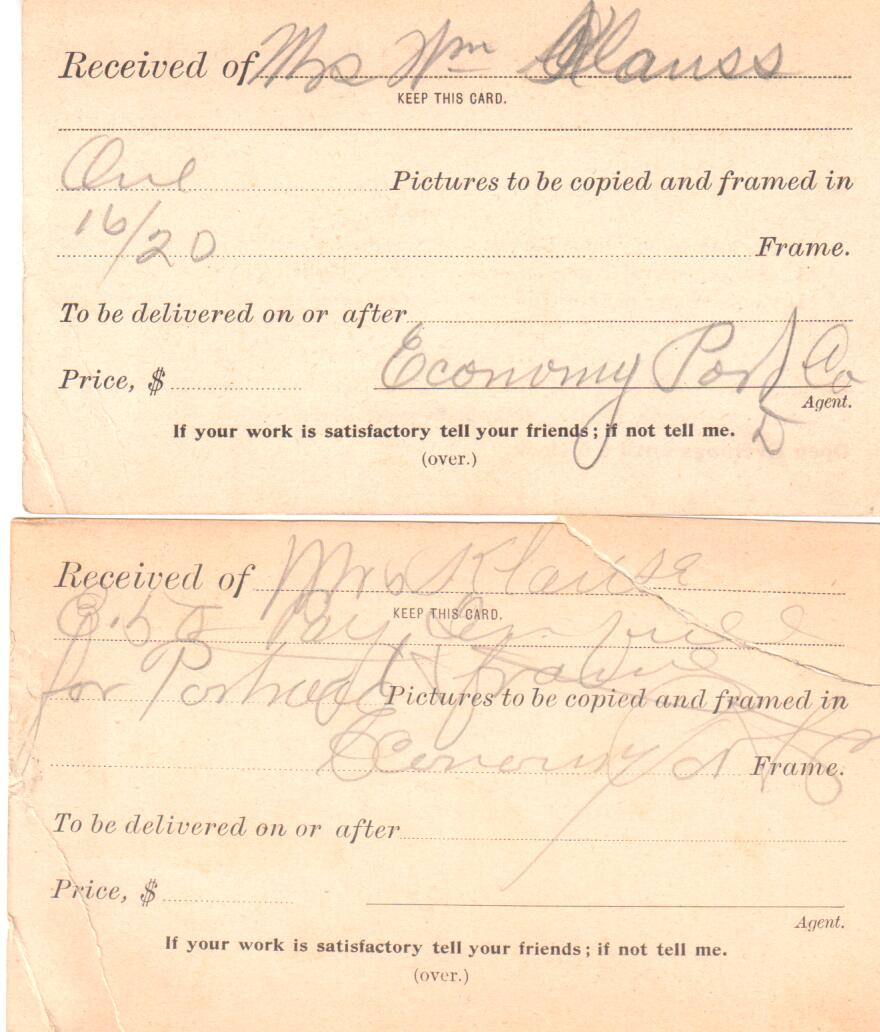 Received of Mrs Wm Klauss
KEEP THIS CARD.
One Pictures to be copied and framed in
16/20 Frame.
To be delivered on or after
Price, $ Economy Port Co
Agent.
If your work is satisfactory tell your friends; if not tell me.
(over.)
Received of Mrs Klause
KEEP THIS CARD.
Pay in full
for Portrait & frame Pictures to be copied and framed in
Economy Frame.
To be delivered on or after
Price, $
Agent.
If your work is satisfactory tell your friends; if not tell me.
(over.)